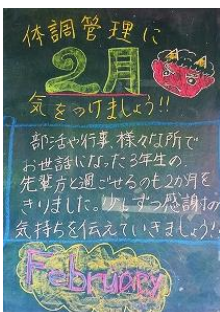 体調管理に
2月
気をつけましょう!!
部活や行事、様々な所で
お世話になった3年生の
先輩方と過ごせるのも2か月を
きりました。少しずつ感謝の
気持ちを伝えていきましょう!!
February